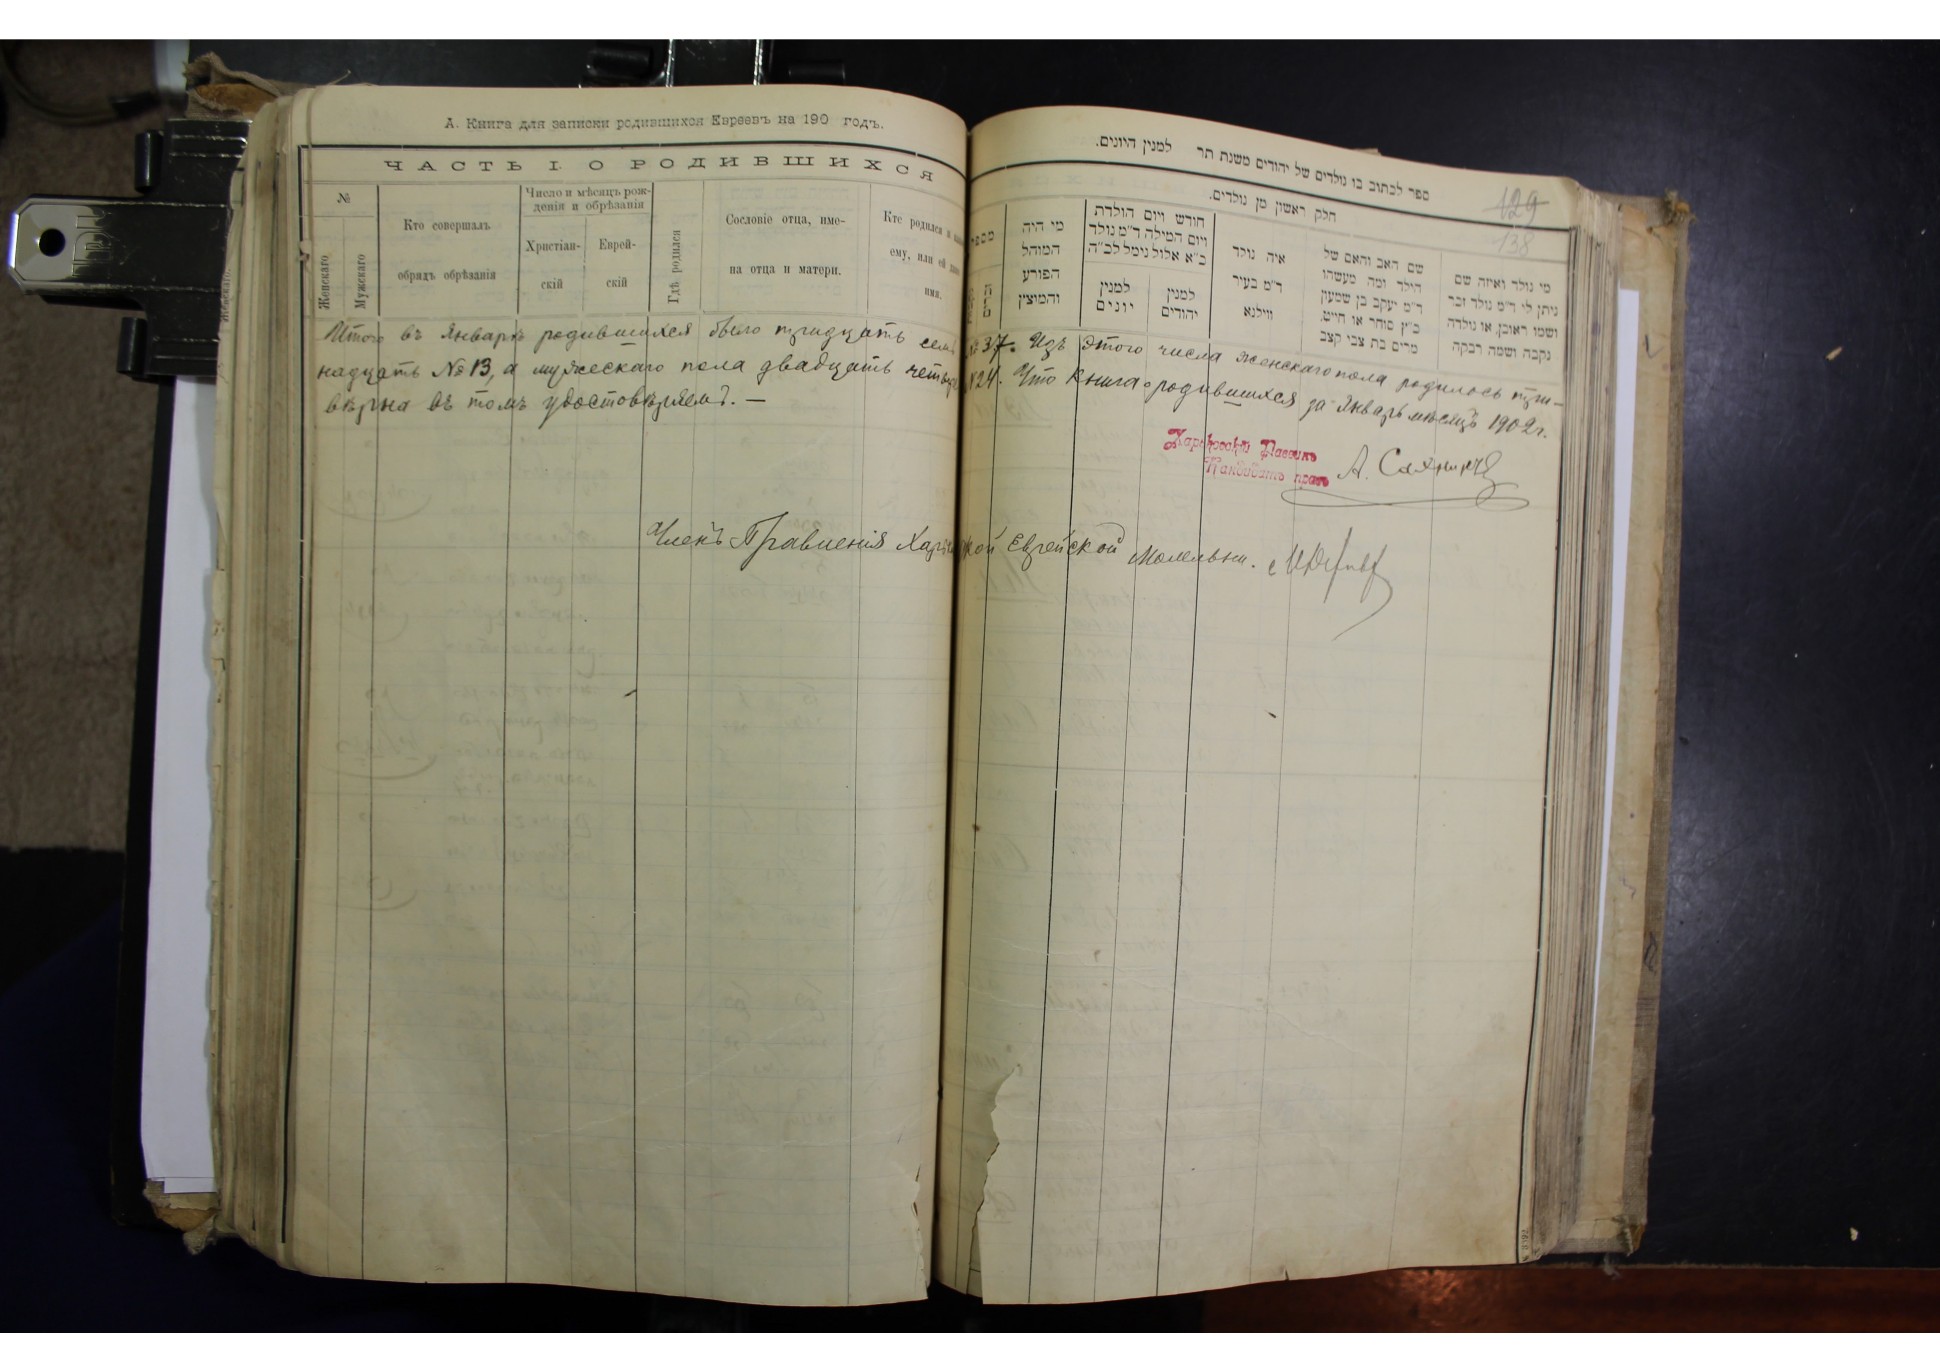 А. Книга для записки родившихся Евреевъ на 190 годъ.
ЧАСТЬ I. О РОДИВШИХСЯ
№
Женскаго
Мужскаго
Кто совершалъ
обрядъ обрѣзанія
Число и мѣсяцъ рож-
денія и обрѣзанія
Христіан-
скій
Еврей-
скій
Гдѣ родился
Сословіе отца, име-
на отца и матери.
Кто родился и
ему, или ей
имя.
ספר לכתוב בו נולדים של יהודים משנת תר למנין היונים.
129
138
חלק ראשון מן נולדים.
מספר
מי היה
המוהל
הפורע
והמוצץ
חודש ויום הולדת
ויום המילה ד"מ נולד
כ"א אלול נימל לכ"ה
למנין
יונים
למנין
יהודים
איה נולד
ד"מ בעיר
ווילנא
שם האב והאם של
הילד ומה מעשהו
ד"מ יעקב בן שמעון
כ"ץ סוחר או חייט,
מרים בת צבי קצב
מי נולד ואיזה שם
ניתן לו ד"מ נולד זכר
ושמו ראובן, או נולדה
נקבה ושמה רבקה
Итого въ Январѣ родившихся было тридцать семь № 37. Изъ этого числа женскаго пола родилось три-
надцать № 13, а мужескаго пола двадцать четыре № 24. Что книга о родившихся за Январь мѣсяцъ 1902 г.
вѣрна въ томъ удостовѣряемъ. —
Харьковскій Раввинъ
Кандидатъ правъ
А.
Членъ Правленія Харьковской Еврейской Молельни.